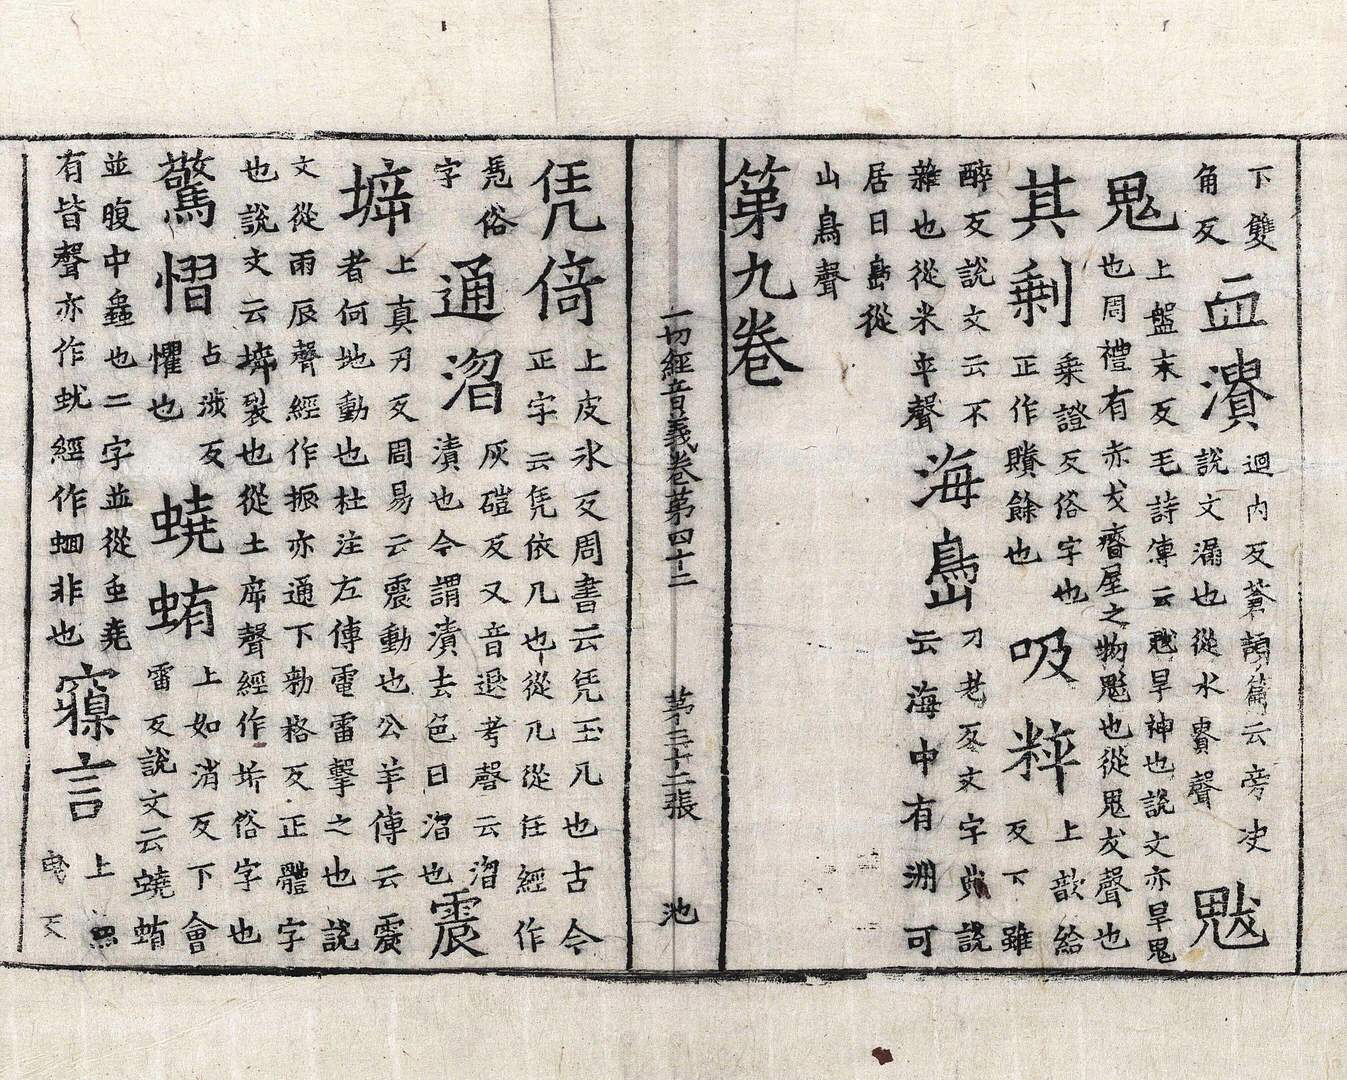 下雙
角反
血潰
迴內反蒼頡篇云旁决
說文漏也從水貴聲
魃
鬼
上盤末反毛詩傳云魃旱神也說文亦旱鬼
也周禮有赤犮癠屋之物魃也從鬼犮聲也
其剩
乗證反俗字也
正作賸餘也
吸粹
上歆給
反下雖
醉反說文云不
雜也從米卒聲
海㠀
刀老反文字典說
云海中有洲可
居曰㠀從
山鳥聲
第九卷
一切經音義卷第四十二 第三十二張 池
凭倚
上皮氷反周書云凭玉几也古今
正字云凭依几也從几從任經作
凴俗
字
通
灰磑反又音退考聲云
漬也今謂漬去色曰也
震
㙤
上真刃反周易云震動也公羊傳云震
者何地動也杜注左傳電雷擊之也說
文從雨辰聲經作振亦通下勑格反正體字
也說文云㙤裂也從土㡿聲經作坼俗字也
驚慴
占涉反
懼也
蟯蛕
上如消反下會
雷反說文云蟯蛕
並腹中蟲也二字並從虫堯
有皆聲亦作蚘經作蛔非也
寱言
上